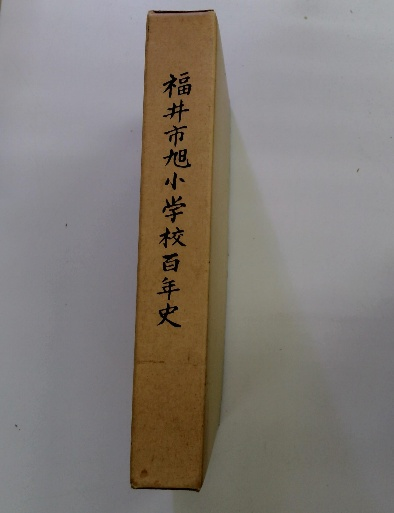 福井市旭小学校百年史